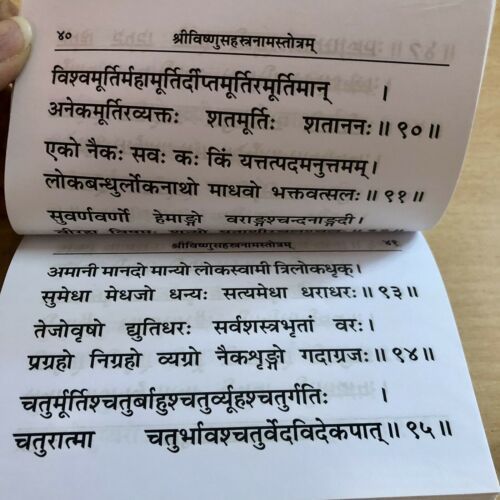 ४० श्रीविष्णुसहस्रनामस्तोत्रम्
विश्वमूर्तिर्महामूर्तिर्दीप्तमूर्तिरमूर्तिमान् ।
अनेकमूर्तिरव्यक्तः शतमूर्तिः शताननः ॥ ९० ॥
एको नैकः सवः कः किं यत्तत्पदमनुत्तमम् ।
लोकबन्धुर्लोकनाथो माधवो भक्तवत्सलः ॥ ९१ ॥
सुवर्णवर्णो हेमाङ्गो वराङ्गश्चन्दनाङ्गदी ।
श्रीविष्णुसहस्रनामस्तोत्रम् ४१
अमानी मानदो मान्यो लोकस्वामी त्रिलोकधृक् ।
सुमेधा मेधजो धन्यः सत्यमेधा धराधरः ॥ ९३ ॥
तेजोवृषो द्युतिधरः सर्वशस्त्रभृतां वरः ।
प्रग्रहो निग्रहो व्यग्रो नैकशृङ्गो गदाग्रजः ॥ ९४ ॥
चतुर्मूर्तिश्चतुर्बाहुश्चतुर्व्यूहश्चतुर्गतिः ।
चतुरात्मा चतुर्भावश्चतुर्वेदविदेकपात् ॥ ९५ ॥